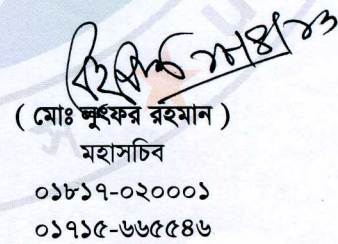 ( মোঃ লুৎফর রহমান )
মহাসচিব
০১৮১৭-০২০০০১
০১৭১৫-৬৬৫৫৪৬